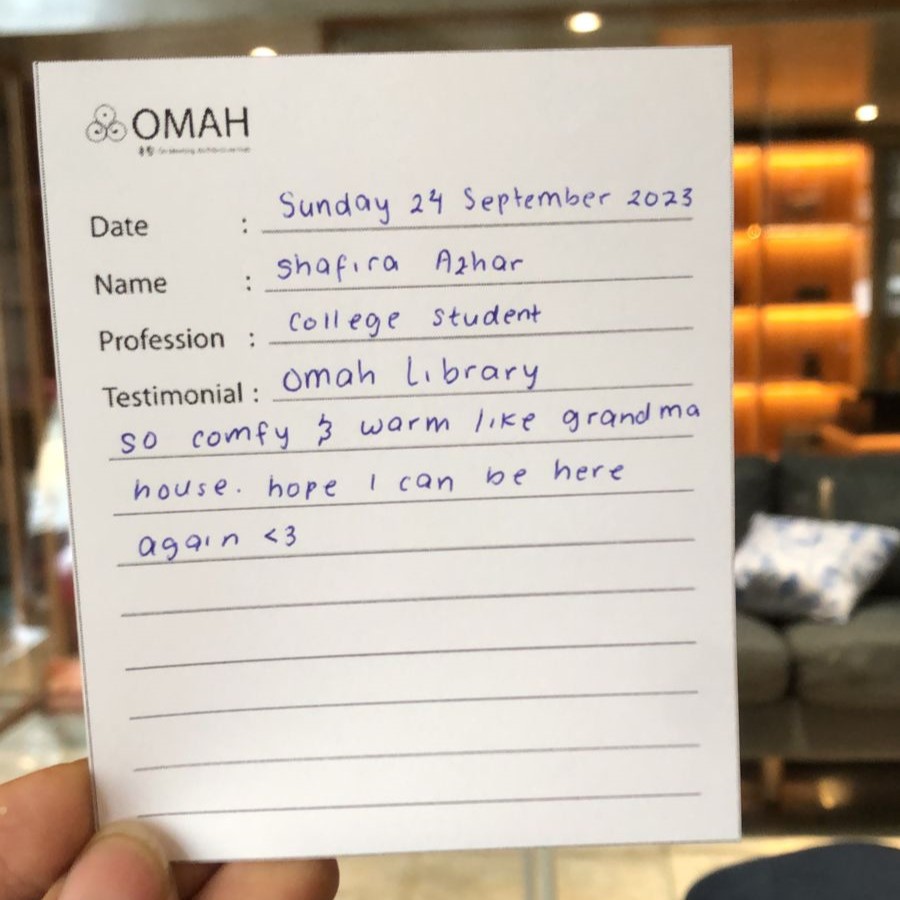 OMAH
Date : Sunday 24 September 2023
Name : Shafira Azhar
Profession : College student
Testimonial : Omah Library
so comfy & warm like grandma
house. hope I can be here
again <3